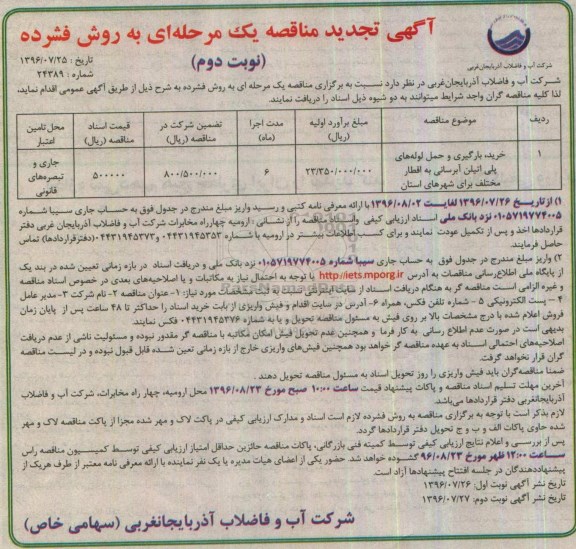 آگهی تجدید مناقصه یک مرحله‌ای به روش فشرده
(نوبت دوم)
تاریخ : ۱۳۹۶/۰۷/۲۵
شماره : ۲۴۳۸۹
شرکت آب و فاضلاب آذربایجان‌غربی
شرکت آب و فاضلاب آذربایجان‌غربی در نظر دارد نسبت به برگزاری مناقصه یک مرحله ای به روش فشرده به شرح ذیل از طریق آگهی عمومی اقدام نماید،
لذا کلیه مناقصه گران واجد شرایط میتوانند به دو شیوه ذیل اسناد را دریافت نمایند.
ردیف	موضوع مناقصه	مبلغ برآورد اولیه (ریال)	مدت اجرا (ماه)	تضمین شرکت در مناقصه (ریال)	قیمت اسناد مناقصه (ریال)	محل تامین اعتبار
۱	خرید، بارگیری و حمل لوله‌های پلی اتیلن آبرسانی به اقطار مختلف برای شهرهای استان	۲۳/۳۵۰/۰۰۰/۰۰۰	۶	۸۰۰/۵۰۰/۰۰۰	۵۰۰۰۰۰	جاری و تبصره‌های قانونی
۱) از تاریخ ۱۳۹۶/۰۷/۲۶ لغایت ۱۳۹۶/۰۸/۰۲ با ارائه معرفی نامه کتبی و رسید واریز مبلغ مندرج در جدول فوق به حساب جاری سیبا شماره
۰۱۰۵۷۱۹۷۷۴۰۰۵ نزد بانک ملی اسناد ارزیابی کیفی و اسناد مناقصه را از نشانی : ارومیه چهارراه مخابرات شرکت آب و فاضلاب آذربایجان غربی دفتر
قراردادها اخذ و پس از تکمیل عودت نمایند و برای کسب اطلاعات بیشتر در ارومیه با شماره ۰۴۴۳۱۹۴۵۳۵۳ و ۰۴۴۳۱۹۴۵۳۷۳ (دفترقراردادها) تماس
حاصل فرمایند.
۲) واریز مبلغ مندرج در جدول فوق به حساب جاری سیبا شماره ۰۱۰۵۷۱۹۷۷۴۰۰۵ نزد بانک ملی و دریافت اسناد در بازه زمانی تعیین شده در بند یک
از پایگاه ملی اطلاع‌رسانی مناقصات به آدرس http://iets.mporg.ir با توجه به احتمال نیاز به مکاتبات و یا اصلاحیه‌های بعدی در خصوص اسناد مناقصه
و غیره الزامی است مناقصه گر به هنگام دریافت اسناد از سایت اینترنتی مشخصات مورد نیاز: ۱- عنوان مناقصه ۲- نام شرکت ۳- مدیر عامل
۴- پست الکترونیکی ۵- شماره تلفن فکس، همراه ۶- آدرس در سایت اقدام و فیش واریزی از بابت خرید اسناد را حداکثر تا ۴۸ ساعت پس از پایان زمان
فروش اعلام شده با درج مشخصات بالا بر روی فیش به مسئول مناقصه تحویل و یا به شماره ۰۴۴۳۱۹۴۵۳۷۶ فکس نمایند.
بدیهی است در صورت عدم اطلاع رسانی به کار فرما و همچنین عدم تحویل فیش امکان مکاتبه با مناقصه گر مقدور نبوده و مسئولیت ناشی از عدم دریافت
اصلاحیه‌های احتمالی اسناد به عهده مناقصه گر خواهد بود همچنین فیش‌های واریزی خارج از بازه زمانی تعین شده قابل قبول نبوده و در لیست مناقصه
گران قرار نخواهد گرفت.
ضمنا مناقصه‌گران باید فیش واریزی را روز تحویل اسناد به مسئول مناقصه تحویل دهند .
آخرین مهلت تسلیم اسناد مناقصه و پاکات پیشنهاد قیمت ساعت ۱۰:۰۰ صبح مورخ ۱۳۹۶/۰۸/۲۳ محل ارومیه، چهار راه مخابرات، شرکت آب و فاضلاب
آذربایجانغربی دفتر قراردادها می‌باشد.
لازم بذکر است با توجه به برگزاری مناقصه به روش فشرده لازم است اسناد و مدارک ارزیابی کیفی در پاکت لاک و مهر شده مجزا از پاکت مناقصه لاک و مهر
شده حاوی پاکات الف و ب و ج تحویل دفتر قراردادها گردد.
پس از بررسی و اعلام نتایج ارزیابی کیفی توسط کمیته فنی بازرگانی، پاکات مناقصه حائزین حداقل امتیاز ارزیابی کیفی توسط کمیسیون مناقصه راس
ساعت ۱۲:۰۰ ظهر مورخ ۹۶/۰۸/۲۳ گشوده خواهد شد. حضور یکی از اعضای هیات مدیره یا یک نفر نماینده با ارائه معرفی نامه معتبر از طرف هریک از
پیشنهاددهندگان در جلسه افتتاح پیشنهادها آزاد است.
تاریخ نشر آگهی نوبت اول: ۱۳۹۶/۰۷/۲۶
تاریخ نشر آگهی نوبت دوم: ۱۳۹۶/۰۷/۲۷
شرکت آب و فاضلاب آذربایجانغربی (سهامی خاص)